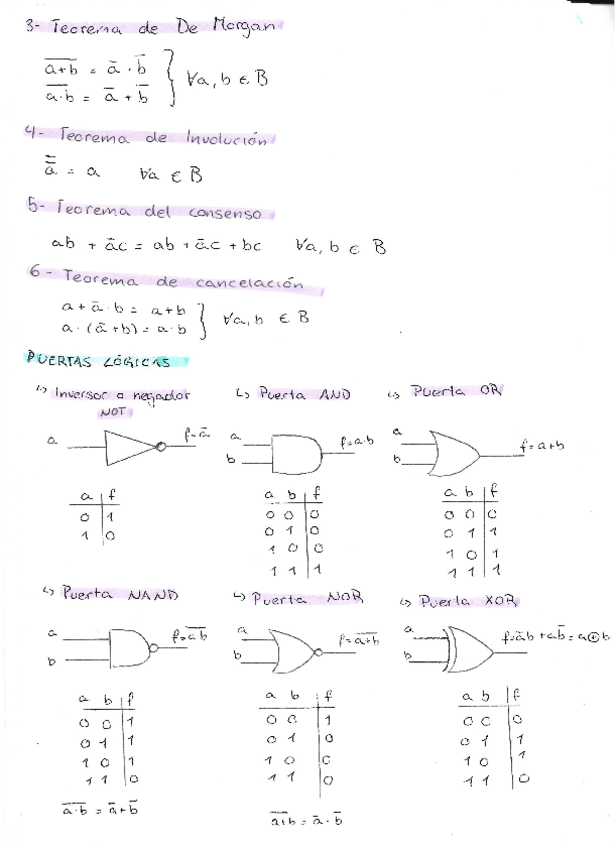 3- Teorema de De Morgan
a̅+̅b̅ = ā · b̄
a̅·̅b̅ = ā + b̄ } ∀a, b ∈ B
4- Teorema de Involución
a̿ = a ∀a ∈ B
5- Teorema del consenso
ab + āc = ab + āc + bc ∀a, b ∈ B
6- Teorema de cancelación
a + ā · b = a + b
a · (ā + b) = a · b } ∀a, b ∈ B
PUERTAS LÓGICAS
↳ Inversor o negador NOT
a f=ā
a f
0 1
1 0
↳ Puerta AND
a b f=a·b
a b f
0 0 0
0 1 0
1 0 0
1 1 1
↳ Puerta OR
a b f=a+b
a b f
0 0 0
0 1 1
1 0 1
1 1 1
↳ Puerta NAND
a b f=a̅b̅
a b f
0 0 1
0 1 1
1 0 1
1 1 0
a̅·̅b̅ = ā + b̄
↳ Puerta NOR
a b f=a̅+̅b̅
a b f
0 0 1
0 1 0
1 0 0
1 1 0
a̅+̅b̅ = ā · b̄
↳ Puerta XOR
a b f=āb + ab̄ = a⊕b
a b f
0 0 0
0 1 1
1 0 1
1 1 0